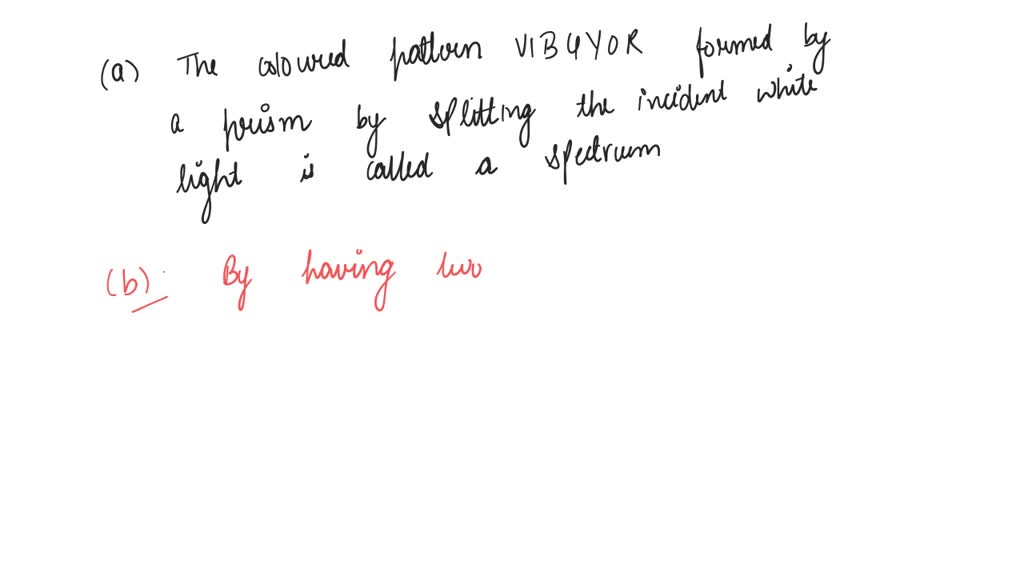 (a) The coloured pattern VIBGYOR formed by
a prism by splitting the incident white
light is called a spectrum
(b) By having two